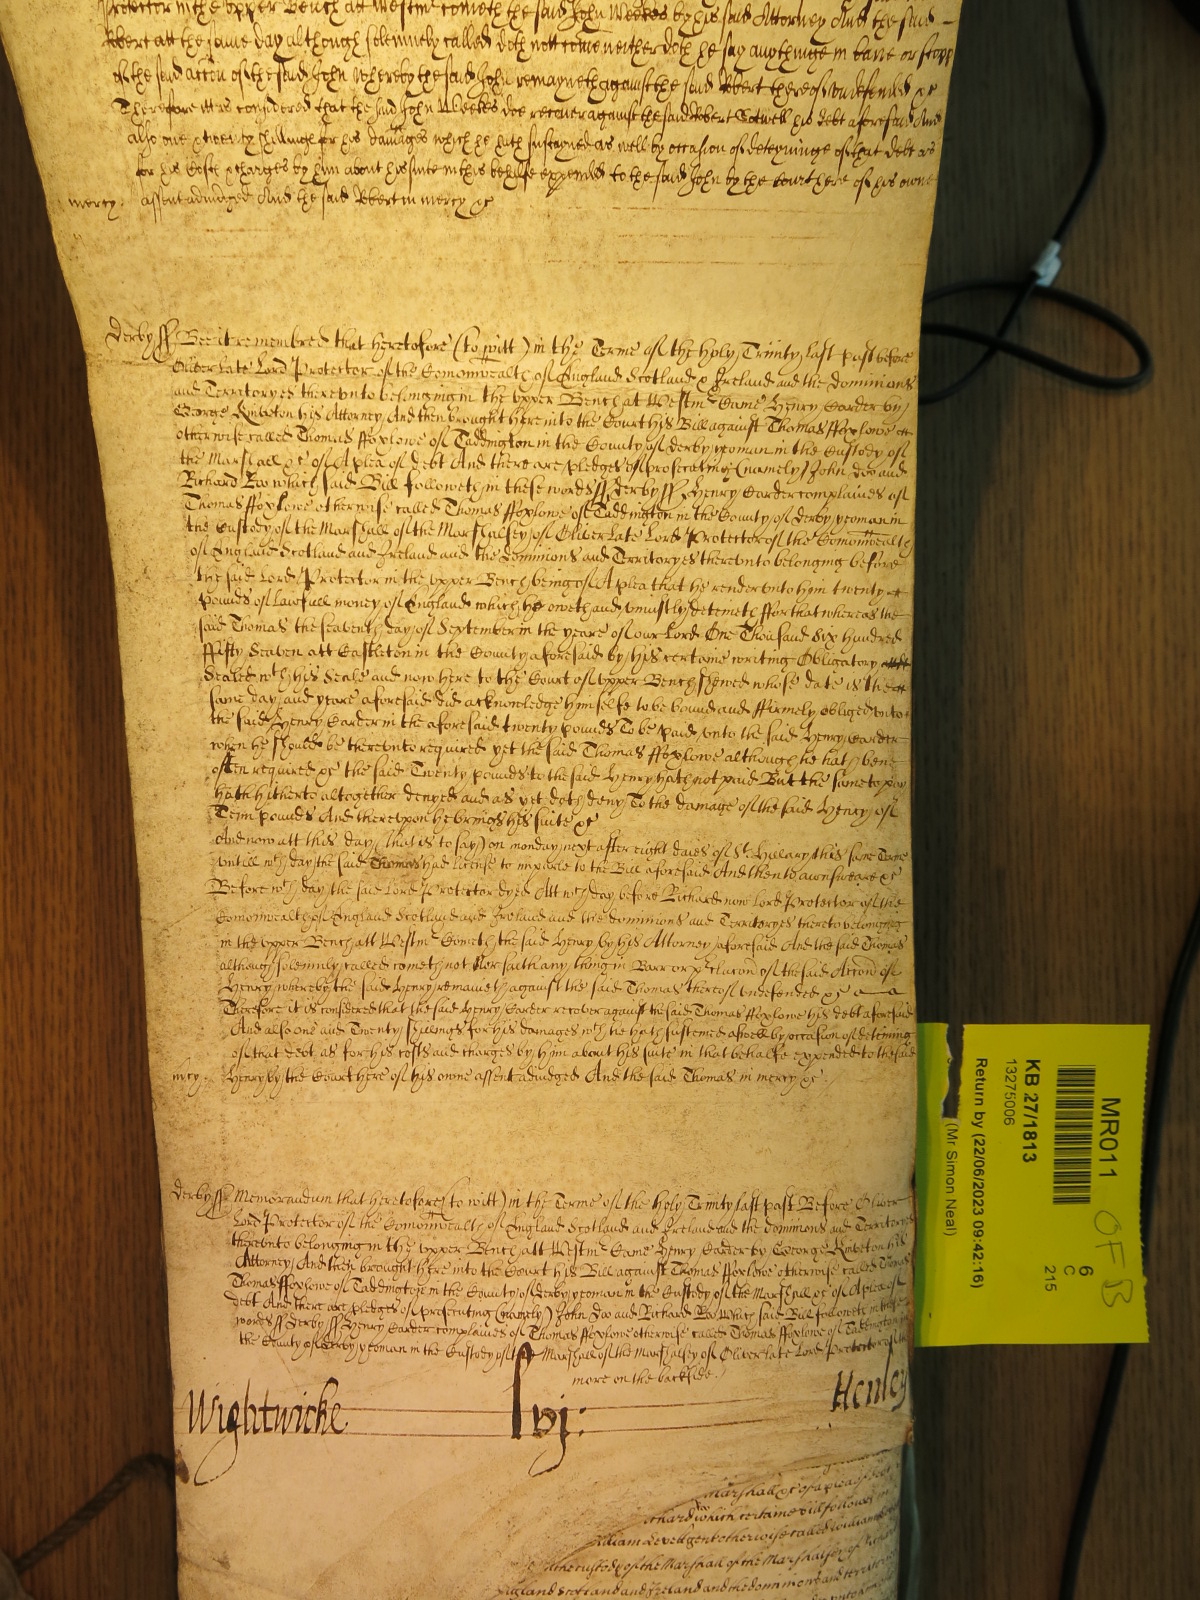 Protector in the upper Bench at Westmr cometh the said John Weekes by his said Attorney And the said
Robert att the same day although solemnely called doth nott come neither doth he say anythinge in barre or stopp
of the said accon of the said John whereby the said John remayneth against the said Robert thereof undefended &c
Therefore itt is considered that the said John Weekes doe recover against the said Robert his debt aforesaid And
also one & twenty shillings for his damages which he hath susteyned as well by occasion of deteyninge of that debt as
for his Costs & charges by him about his suite in this behalfe expended to the said John by the Court here of his owne
mercy. assent adiudged And the said Robert in mercy &c
Derby ss Bee it remembred that heretofore (to witt) in the Terme of the Holy Trinity last past before
Oliver late Lord Protector of the Comonwealth of England Scotland & Ireland and the dominions
and Territoryes thereunto belonging in the upper Bench at Westmr Came Henry Carder by
George Rimbeton his Attorney And then brought here into the Court his Bill against Thomas ffoxlowe
otherwise called Thomas ffoxlowe of Taddington in the County of derby yeoman in the Custody of
the Marshall &c of A plea of debt And there are pledges of prosecuting (namely) John doo and
Richard Roo which said Bill followeth in these words ss derby ss Henry Carder complaines of
Thomas ffoxlowe otherwise called Thomas ffoxlowe of Taddington in the County of derby yeoman in
the Custody of the Marshall of the Marshalsey of Oliver late Lord Protector of the Comonwealth
of England Scotland and Ireland and the dominions and Territoryes thereunto belonging before
the said Lord Protector in the upper Bench being of A plea that he render unto him twenty
pounds of lawfull money of England which he oweth and uniustly deteineth ffor that whereas the
said Thomas the seaventh day of September in the yeare of our Lord One Thousand Six hundred
ffifty Seaven att Castleton in the County aforesaid by his certaine writing Obligatory
Sealed wth his Seale and now here to the Court of upper Bench shewed whose date is the
same day and yeare aforesaid did acknowledge himselfe to be bound and ffirmely obliged unto
the said Henry Carder in the aforesaid twenty pounds To be paid unto the said Henry Carder
when he should be thereunto required yet the said Thomas ffoxlowe although he hath bene
often required &c the said Twenty pounds to the said Henry hath not paid But the same to pay
hath hitherto altogether denyed and as yet doth deny To the damage of the said Henry of
Tenn pounds And thereupon he brings his suite &c
And now att this day (that is to say) on monday next after eight daies of St Hillary this same Terme
untill wch day the said Thomas had license to imparle to the Bill aforesaid And then to answeare &c
Before wch day the said Lord Protector dyed Att wch day before Richard now Lord Protector of the
Comonwealth of England Scotland and Ireland and the dominions and Territoryes thereto belonging
in the upper Bench att Westmr Cometh the said Henry by his Attorney aforesaid And the said Thomas
although solemnly called cometh not Nor saith any thing in Barr or pclucon of the said Accon of
Henry whereby the said Henry remaineth against the said Thomas thereof undefended &c
Therefore it is considered that the said Henry Carder recover against the said Thomas ffoxlowe his debt aforesaid
And also one and Twenty shillings for his damages wch he hath susteined aswell by occasion of deteining
of that debt as for his costs and charges by him about his suite in that behalfe expended to the said
mercy. Henry by the Court here of his owne assent adiudged And the said Thomas in mercy &c.
derby ss Memorandum that heretofore (to witt) in the Terme of the Holy Trinity last past Before Oliver
Lord Protector of the Comonwealth of England Scotland and Ireland and the dominions and Territoryes
thereunto belonging in the upper Bench att Westmr Came Henry Carder by George Rimbeton his
Attorney And then brought here into the Court his Bill against Thomas ffoxlowe otherwise called
Thomas ffoxlowe of Taddington in the County of derby yeoman in the Custody of the Marshall &c of A plea of
debt And there are pledges of prosecuting (namely) John Doo and Richard Roo Which said Bill followeth in these
words ss Derby ss Henry Carder complaines of Thomas ffoxlowe otherwise called Thomas ffoxlowe of Taddington in
the County of derby yeoman in the Custody of the Marshall of the Marshalsey of Oliver late Lord Protector of the
more on the backside.
Wightwicke
lvj:
Henley
Marshall &c of a plea of debt
which certaine bill followes in
otherwise called William
the custody of the Marshall of the Marshalsey of Richard
England Scotland and Ireland and the dominions and territories
MR011
KB 27/1813
13275006
Return by (22/06/2023 09:42:16)
(Mr Simon Neal)
6
C
215
OF B